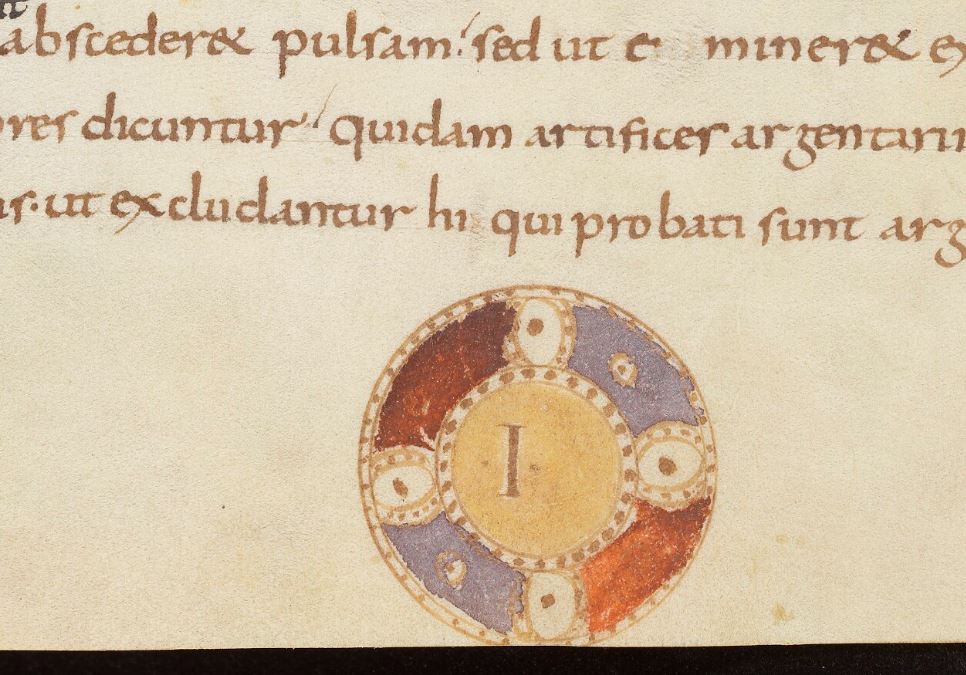 absceder& pulsam. sed ut e miner& ex
ores dicuntur quidam artifices argentarii
us. ut excludantur hi qui probati sunt arg
·I·